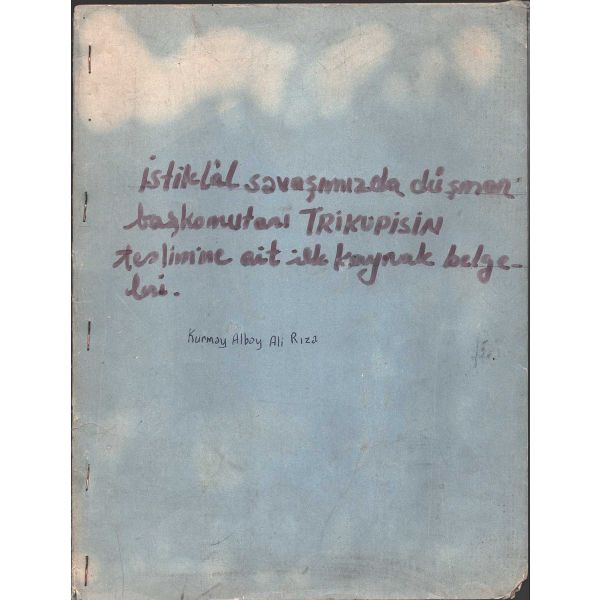 İstiklâl savaşımızda düşman
başkomutanı TRİKUPİSİN
teslimine ait ilk kaynak belge-
leri.
Kurmay Albay Ali Rıza